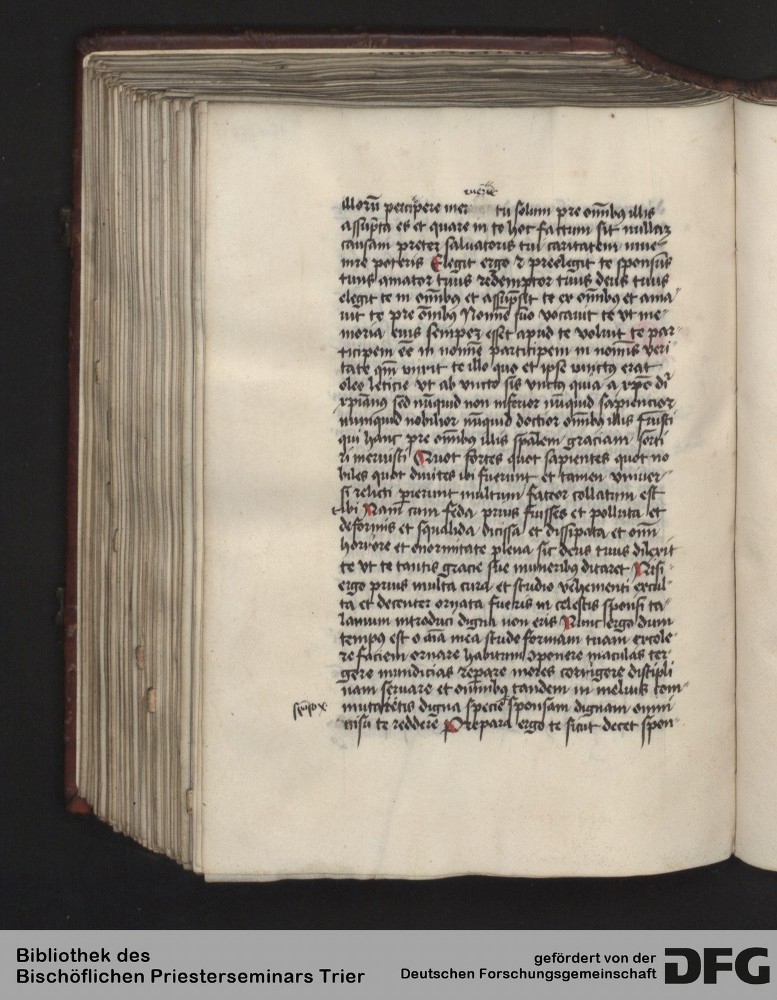 illorū percipere mer tu solum pre omībꝫ illis
assūpta es et quare in te hoc factum sit nullaꝫ
causam preter saluatoris tui caritatem inue-
nire poteris Elegit ergo ⁊ preelegit te sponsus
tuus amator tuus redemptor tuus deus tuus
elegit te in omībꝫ et assūpsit te ex omībꝫ et ama-
uit te pre omībꝫ Nomine suo vocauit te vt me-
moria eius semper esset apud te voluit te par-
ticipem eē in nomīe participem in nomīs veri
tate qm̄ vnxit te illo quo et ipse vnctus erat
oleo leticie vt ab vncto sis vnctus quia a xp̄o dr̄
xp̄ianus sed nūquid non inferior nūquid sapiencior
nunquid nobilior nūquid doctior omībꝫ illis fuisti
qui hanc pre omībꝫ illis sp̄alem graciam sorti
ri meruisti Quot fortes quot sapientes quot no
biles quot diuites ibi fuerunt et tamen vniuer-
si relicti perierunt multum fateor collatum est
tibi Nam cum feda prius fuisses et polluta et
deformis et squalida dicissa et dissipata et omī
horrore et enormitate plena sic deus tuus dilexit
te vt te tantis gracie sue muneribus ditaret Nisi
ergo prius multa cura et studio vehementi excul-
ta et decenter ornata fueris in celestis sponsi ta-
lamum introduci digna non eris Nunc ergo dum
tempus est o aīa mea stude formam tuam excole-
re faciem ornare habitum ꝯponere maculas ter-
gere mundicias reparare mores corrigere discipli
nam seruare et omnibus tandem in melius com-
mutatis digna specie sponsam dignam omni
nisu te reddere Prepara ergo te sicut decet spon-
Bibliothek des
Bischöflichen Priesterseminars Trier
gefördert von der
Deutschen Forschungsgemeinschaft
DFG